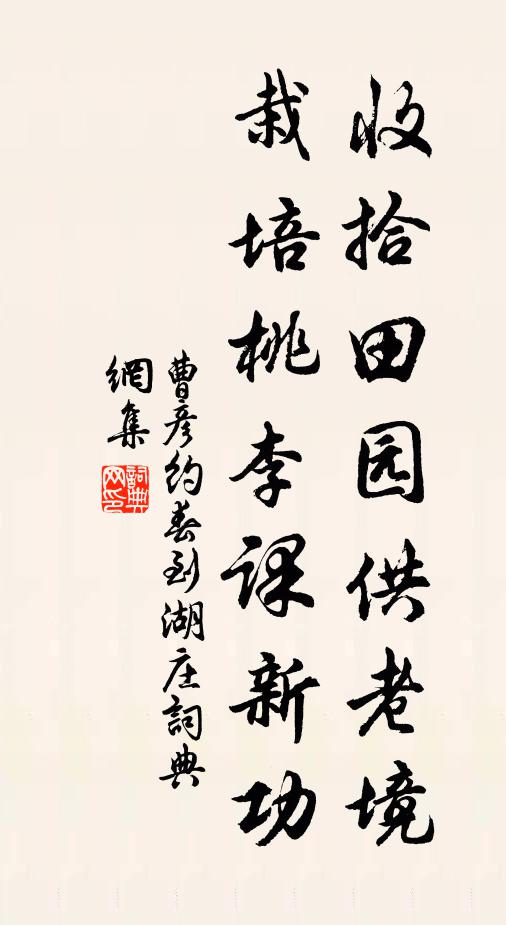 收拾田园供老境
栽培桃李课新功
曹彦约春到湖庄詞典
網集
詞典网印